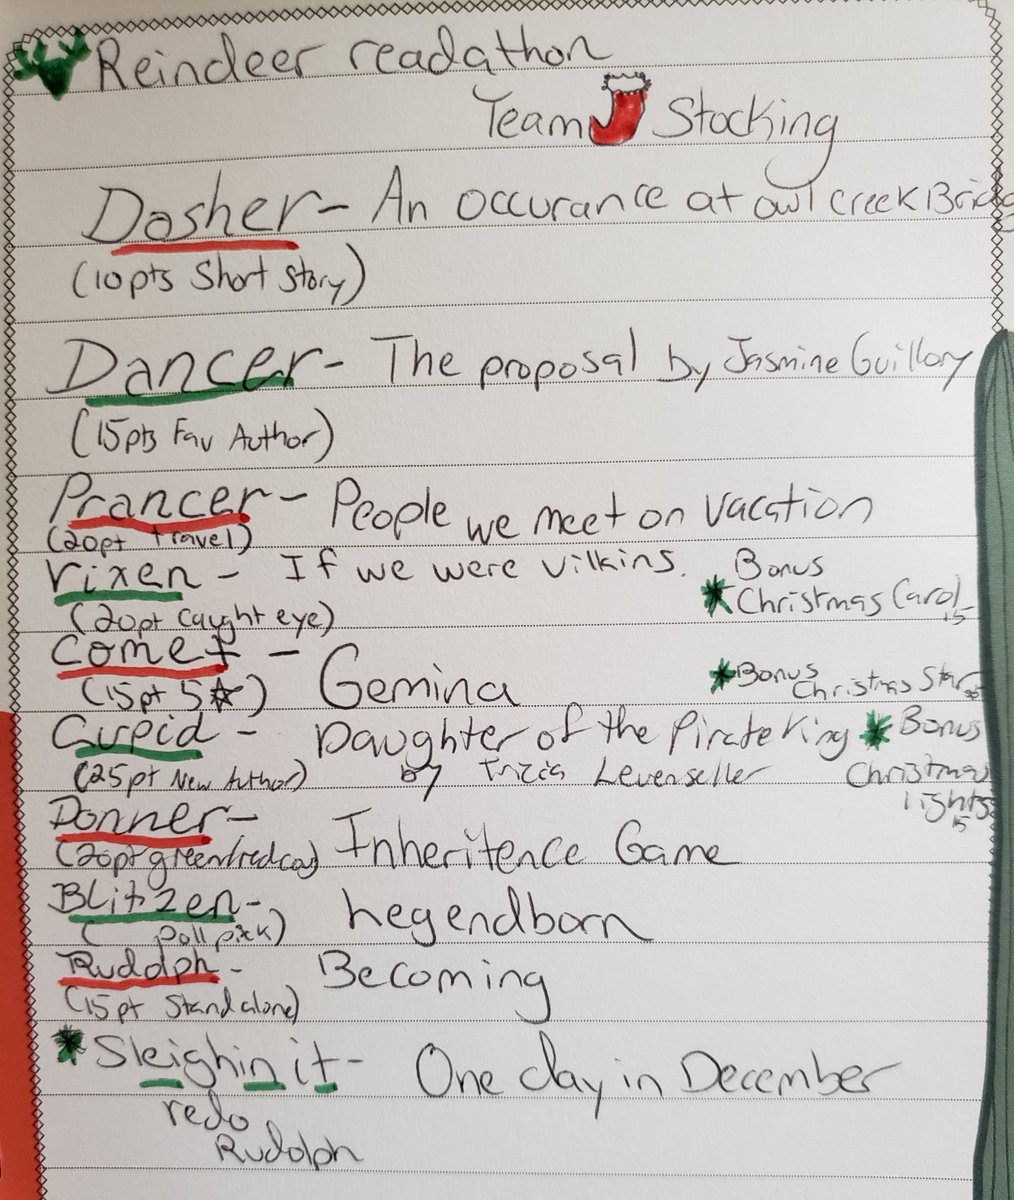 Reindeer readathon
Team Stocking
Dasher- An occurance at owl creek Bridg
(10pts Short Story)
Dancer- The proposal by Jasmine Guillory
(15pts Fav Author)
Prancer- People we meet on vacation
(20pt travel)
Vixen- If we were vilkins.
Bonus
Christmas Carol
15
(20pt Caught eye)
Comet - Gemina
Bonus
Christmas Star
(15pt 5☆)
Cupid - Daughter of the Pirate King
Bonus
Christmas
lights
15
(25pt New Author) by Tricia Levenseller
Donner- Inheritence Game
(20pt green/red cov)
Blitzen- Legendborn
( poll pick)
Rudolph- Becoming
(15pt Standalone)
Sleighin it- One day in December
redo
Rudolph